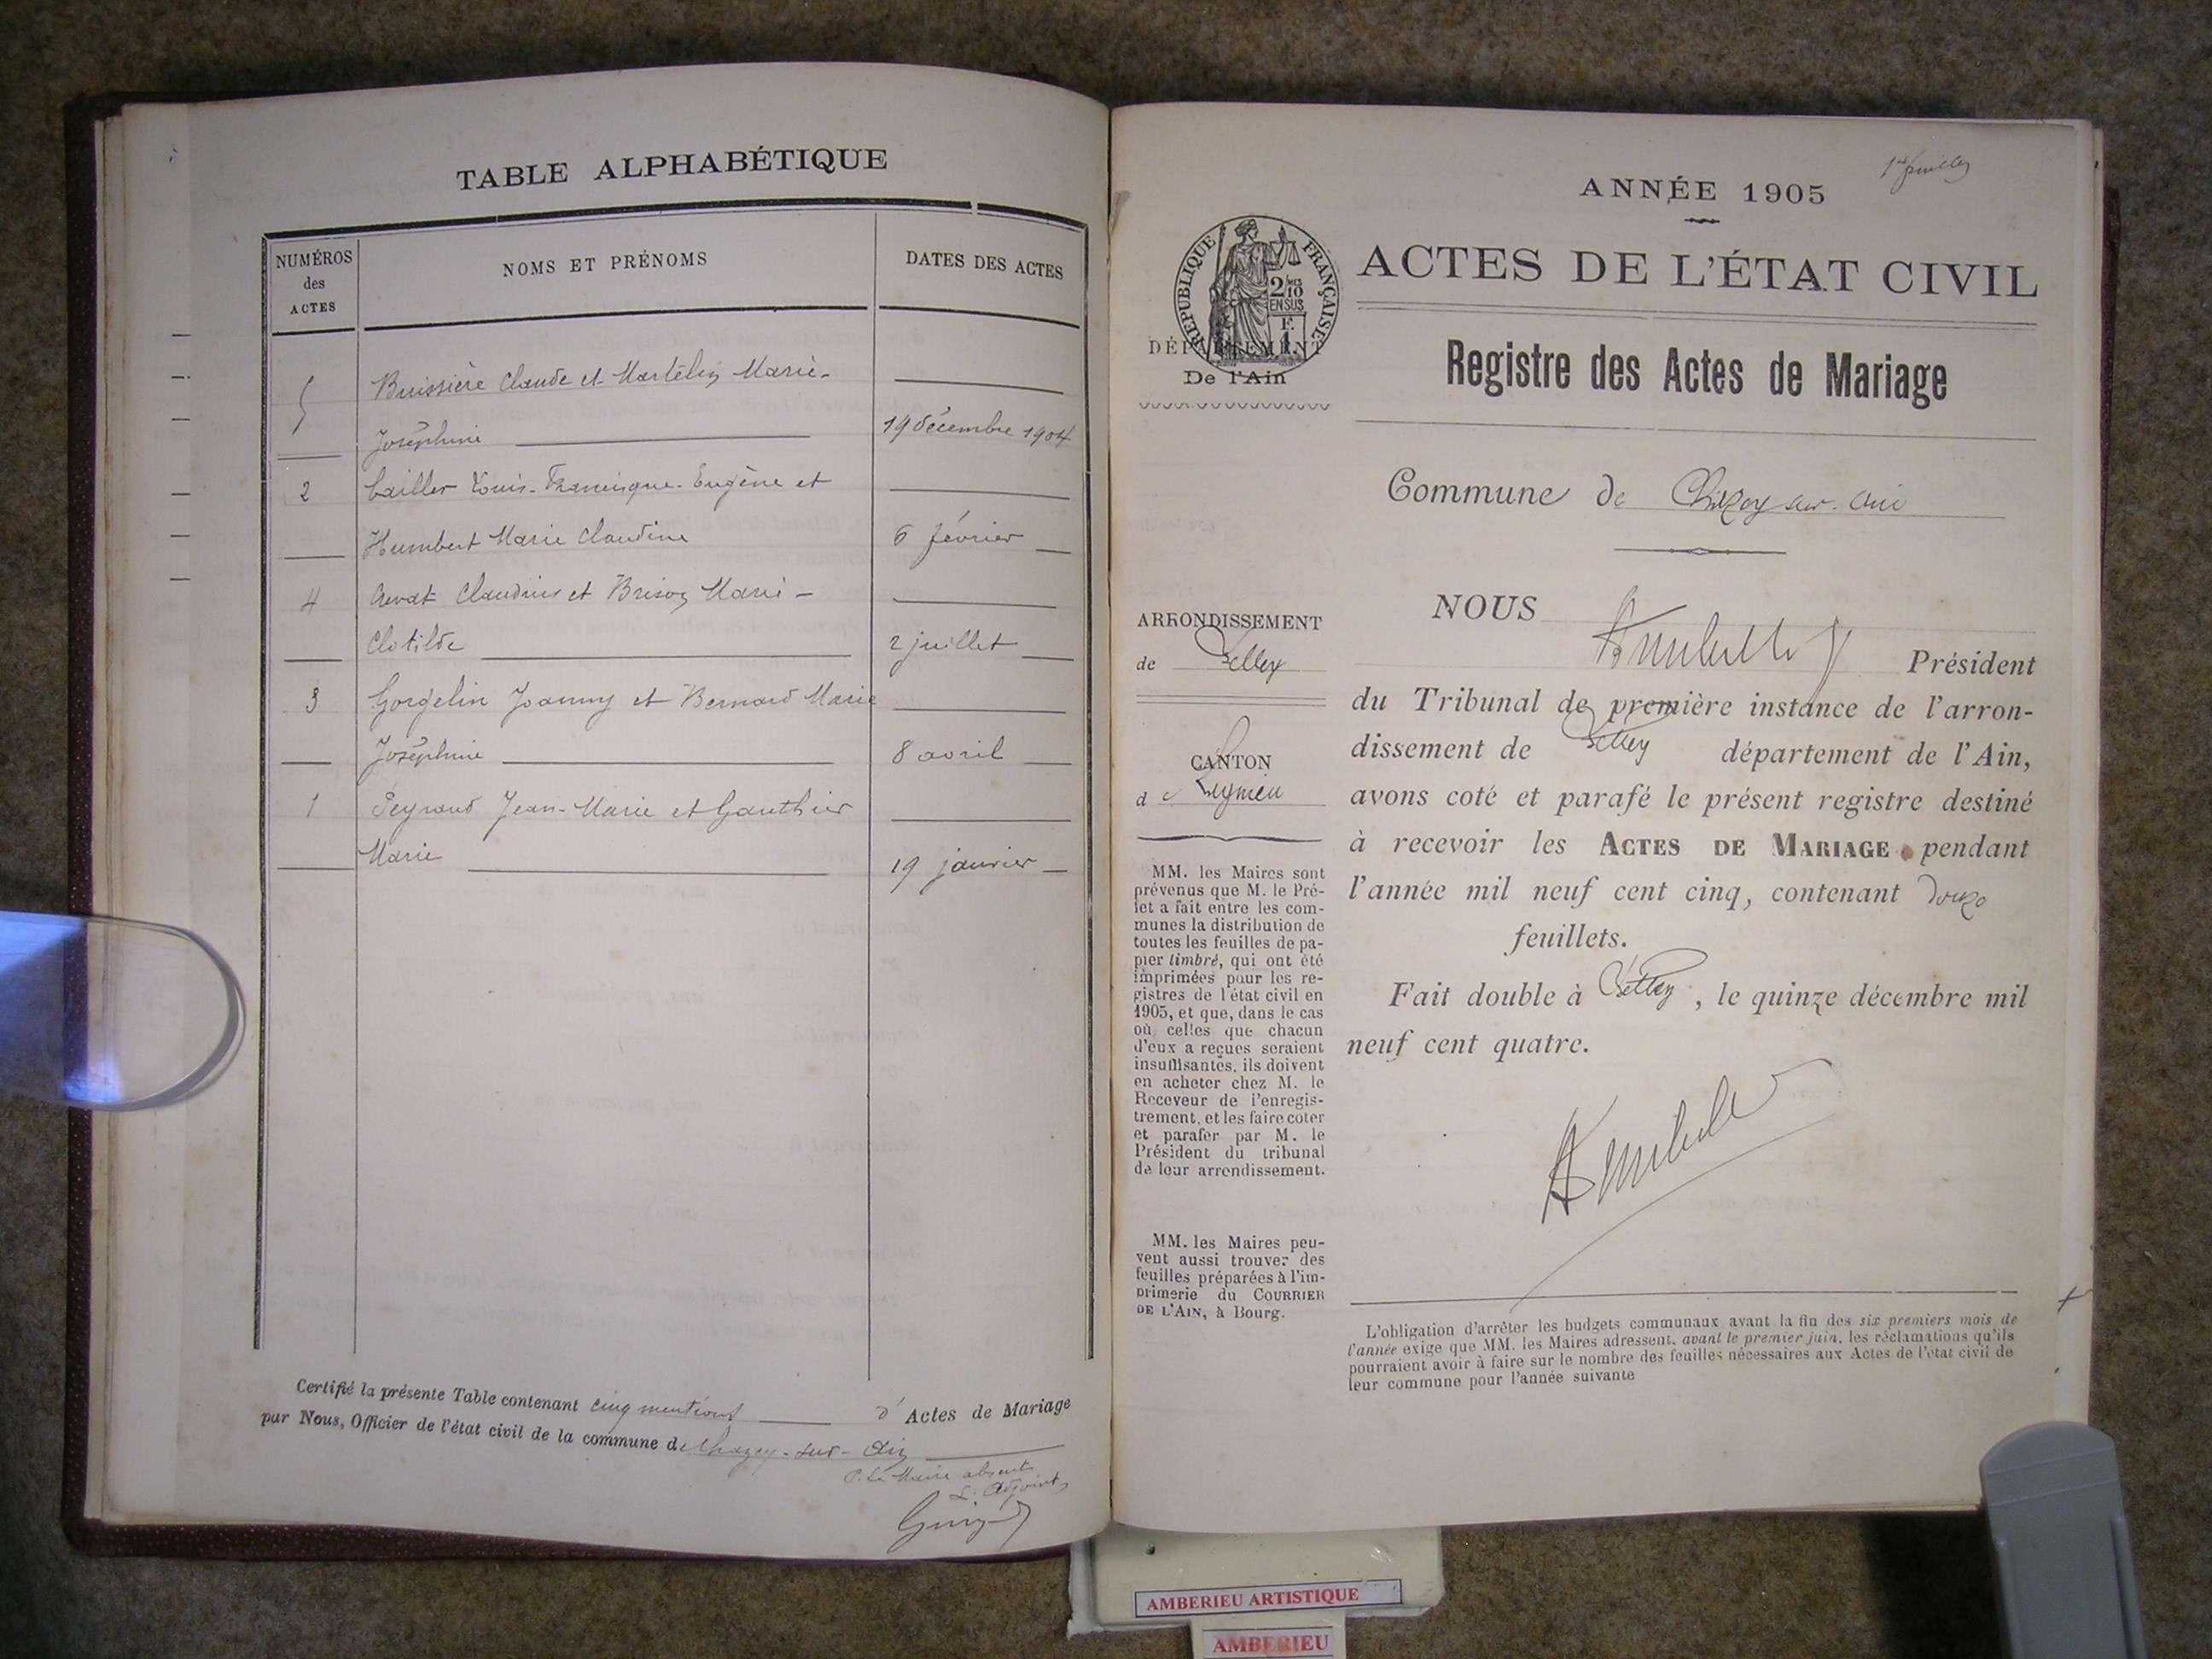 TABLE ALPHABÉTIQUE
NUMÉROS
des
ACTES
NOMS ET PRÉNOMS
DATES DES ACTES
5 Buissière Claude et Martelin Marie-
Joséphine 19 décembre 1904
2 Cailler Louis-Francisque-Eugène et
Humbert Marie Claudine 6 février
4 Claudius et Brison Marie-
Clotilde 2 juillet
3 Gorgelin Joanny et Bernard Marie
Joséphine 8 avril
1 Peyraud Jean-Marie et Gauthier
Marie 19 janvier
Certifié la présente Table contenant cinq mentions d'Actes de Mariage
par Nous, Officier de l'état civil de la commune de Chazey-sur-Ain
P. Le Maire absent
L'Adjoint
ANNÉE 1905
RÉPUBLIQUE FRANÇAISE
2/10
EN SUS
F.
1
DÉPARTEMENT
De l'Ain
ACTES DE L'ÉTAT CIVIL
Registre des Actes de Mariage
Commune de Chazey-sur-Ain
ARRONDISSEMENT
de Belley
CANTON
de Lagnieu
MM. les Maires sont
prévenus que M. le Pré-
fet a fait entre les com-
munes la distribution de
toutes les feuilles de pa-
pier timbré, qui ont été
imprimées pour les re-
gistres de l'état civil en
1905, et que, dans le cas
où celles que chacun
d'eux a reçues seraient
insuffisantes, ils doivent
en acheter chez M. le
Receveur de l'enregis-
trement, et les faire coter
et parafer par M. le
Président du tribunal
de leur arrondissement.
MM. les Maires peu-
vent aussi trouver des
feuilles préparées à l'im-
primerie du COURRIER
DE L'AIN, à Bourg.
NOUS
Président
du Tribunal de première instance de l'arron-
dissement de Belley département de l'Ain,
avons coté et parafé le présent registre destiné
à recevoir les ACTES DE MARIAGE pendant
l'année mil neuf cent cinq, contenant douze
feuillets.
Fait double à Belley, le quinze décembre mil
neuf cent quatre.
L'obligation d'arrêter les budgets communaux avant la fin des six premiers mois de
l'année exige que MM. les Maires adressent, avant le premier juin, les réclamations qu'ils
pourraient avoir à faire sur le nombre des feuilles nécessaires aux Actes de l'état civil de
leur commune pour l'année suivante
AMBERIEU ARTISTIQUE
AMBERIEU